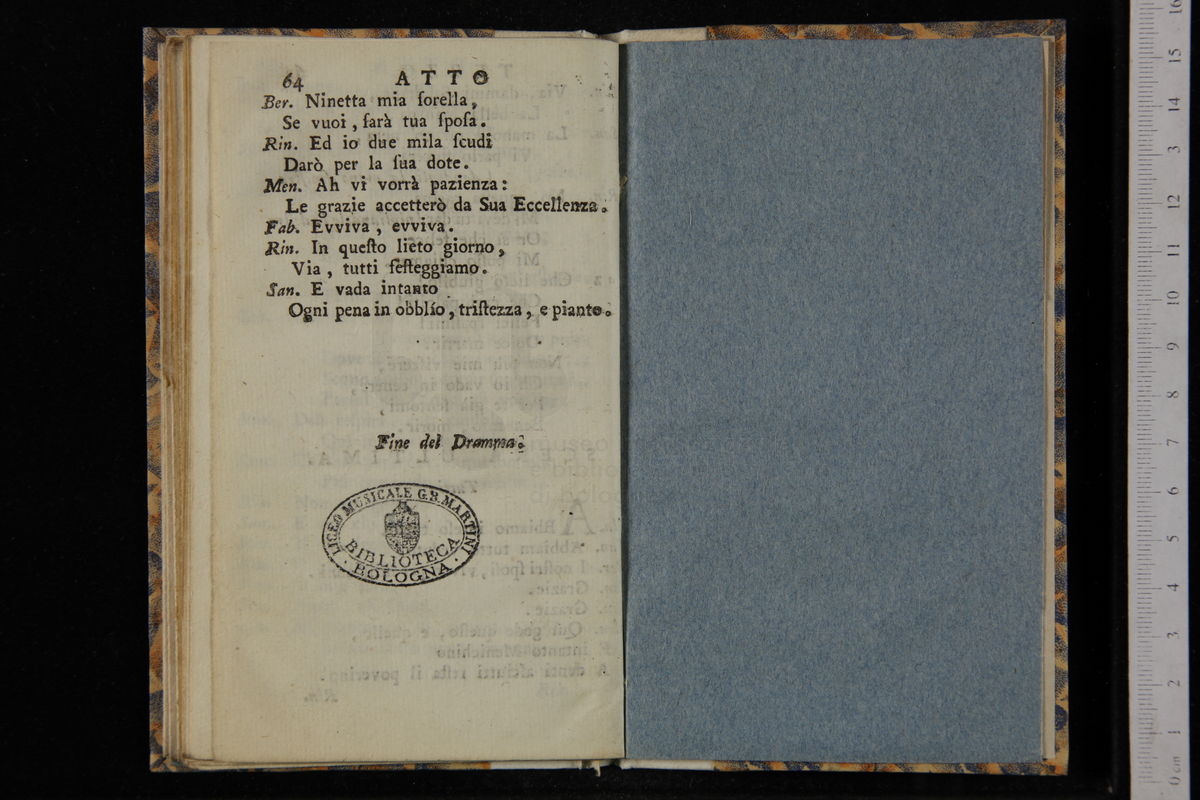 64 ATTO
Ber. Ninetta mia ſorella,
Se vuoi, ſarà tua ſpoſa.
Rin. Ed io due mila ſcudi
Darò per la ſua dote.
Men. Ah vi vorrà pazienza:
Le grazie accetterò da Sua Eccellenza.
Fab. Evviva, evviva.
Rin. In queſto lieto giorno,
Via, tutti feſteggiamo.
San. E vada intanto
Ogni pena in obblío, triſtezza, e pianto.
Fine del Dramma.
LICEO MUSICALE G.B. MARTINI
BIBLIOTECA
· BOLOGNA ·
museo
biblio
di bolog
16
15
14
13
12
11
10
9
8
7
6
5
4
3
2
1
0 cm